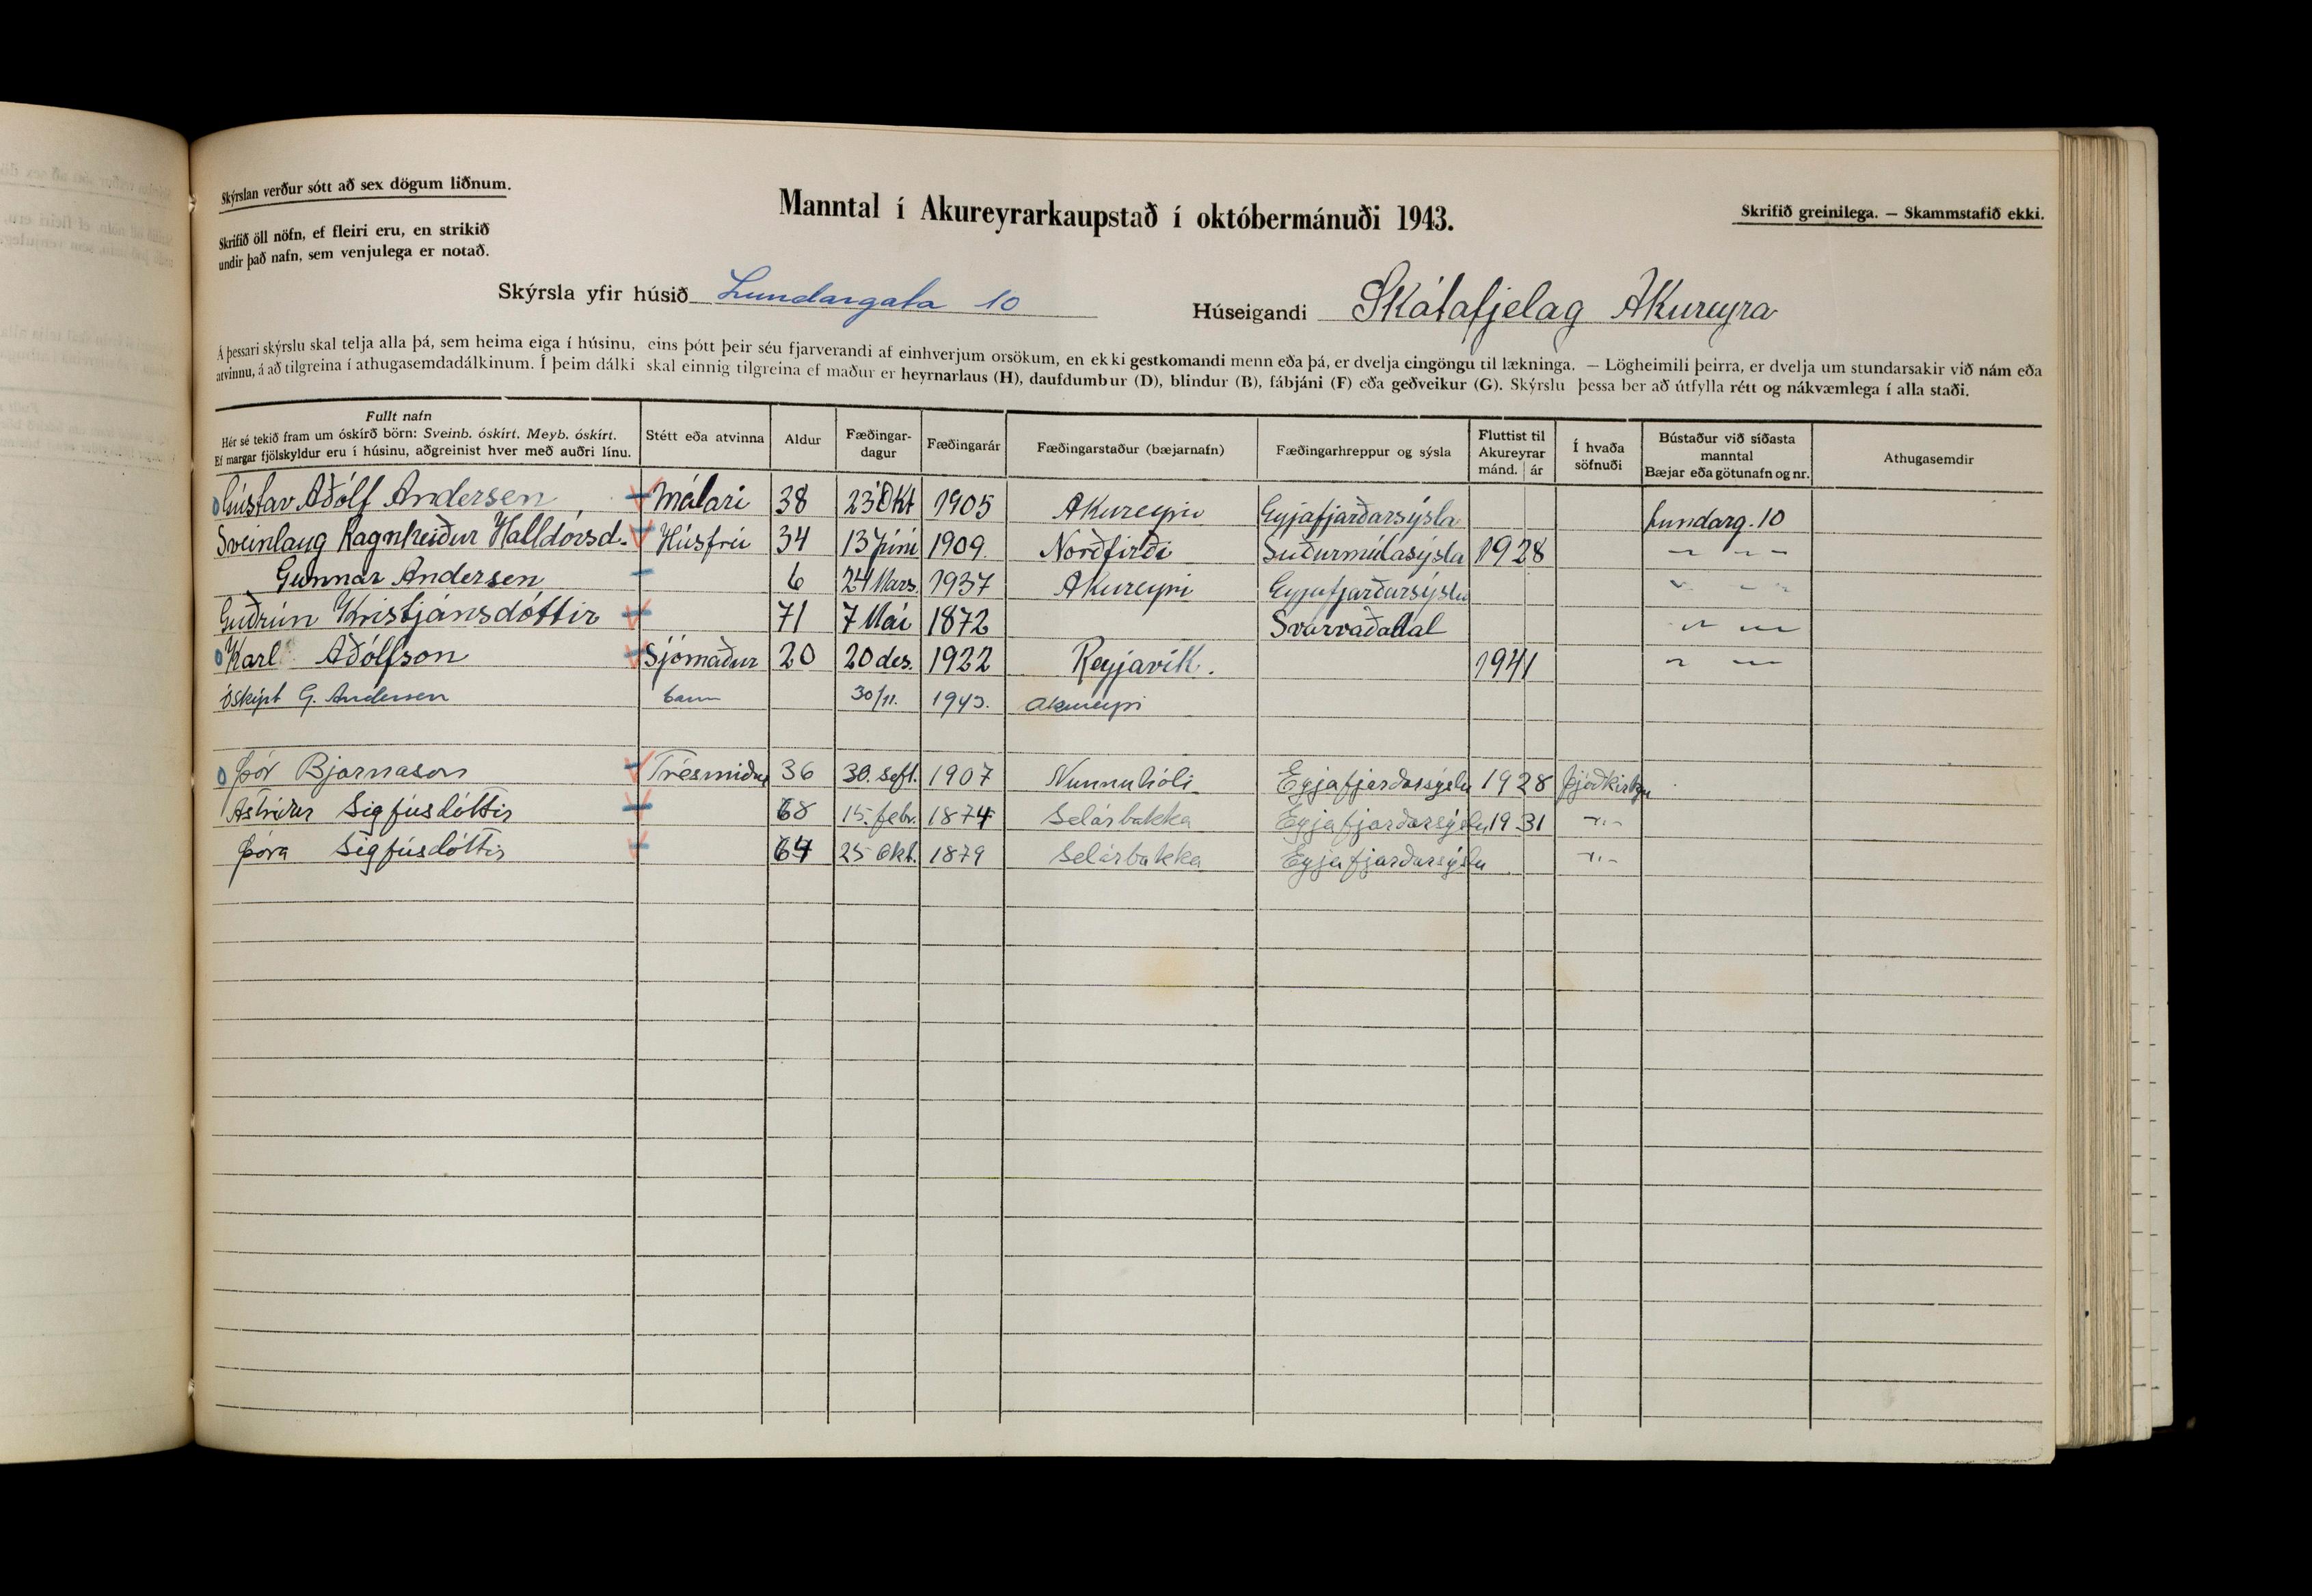 Skýrslan verður sótt að sex dögum liðnum.
Skrifið öll nöfn, ef fleiri eru, en strikið
undir það nafn, sem venjulega er notað.
Manntal í Akureyrarkaupstað í októbermánuði 1943.
Skrifið greinilega. — Skammstafið ekki.
Skýrsla yfir húsið Lundargata 10
Húseigandi Skátafjelag Akureyra
Á þessari skýrslu skal telja alla þá, sem heima eiga í húsinu, eins þótt þeir séu fjarverandi af einhverjum orsökum, en ekki gestkomandi menn eða þá, er dvelja eingöngu til lækninga. — Lögheimili þeirra, er dvelja um stundarsakir við nám eða
atvinnu, á að tilgreina í athugasemdadálkinum. Í þeim dálki skal einnig tilgreina ef maður er heyrnarlaus (H), daufdumbur (D), blindur (B), fábjáni (F) eða geðveikur (G). Skýrslu þessa ber að útfylla rétt og nákvæmlega í alla staði.
Fullt nafn
Hér sé tekið fram um óskírð börn: Sveinb. óskírt. Meyb. óskírt.
Ef margar fjölskyldur eru í húsinu, aðgreinist hver með auðri línu.
Stétt eða atvinna
Aldur
Fæðingar-
dagur
Fæðingarár
Fæðingarstaður (bæjarnafn)
Fæðingarhreppur og sýsla
Fluttist til
Akureyrar
mánd. ár
Í hvaða
söfnuði
Bústaður við síðasta
manntal
Bæjar eða götunafn og nr.
Athugasemdir
Gústav Aðólf Andersen Málari 38 23 Okt 1905 Akureyri Eyjafjarðarsýsla Lundarg. 10
Sveinlaug Ragnheiður Halldórsd. Húsfrú 34 13 Júni 1909. Norðfirði Suðurmúlasýsla 1928 〃 〃
Gunnar Andersen 6 24 Mars. 1937 Akureyri Eyjafjarðarsýsla 〃 〃
Guðrún Kristjánsdóttir 71 7 Mái 1872 Svarvaðadal 〃 〃
Karl Aðólfson Sjómaður 20 20 des. 1922 Reyjavík. 1941 〃 〃
Óskýrt G. Andersen barn 30/11. 1943. Akureyri
Þór Bjarnason Trésmiður 36 30. sept. 1907 Nunnuhóli Eyjafjarðarsýslu 1928 Þjóðkirkju
Ástríður Sigfúsdóttir 68 15. febr. 1874 Selárbakka Eyjafjarðarsýslu 1931 〃
Þóra Sigfúsdóttir 64 25 Okt. 1879 Selárbakka Eyjafjarðarsýslu 〃